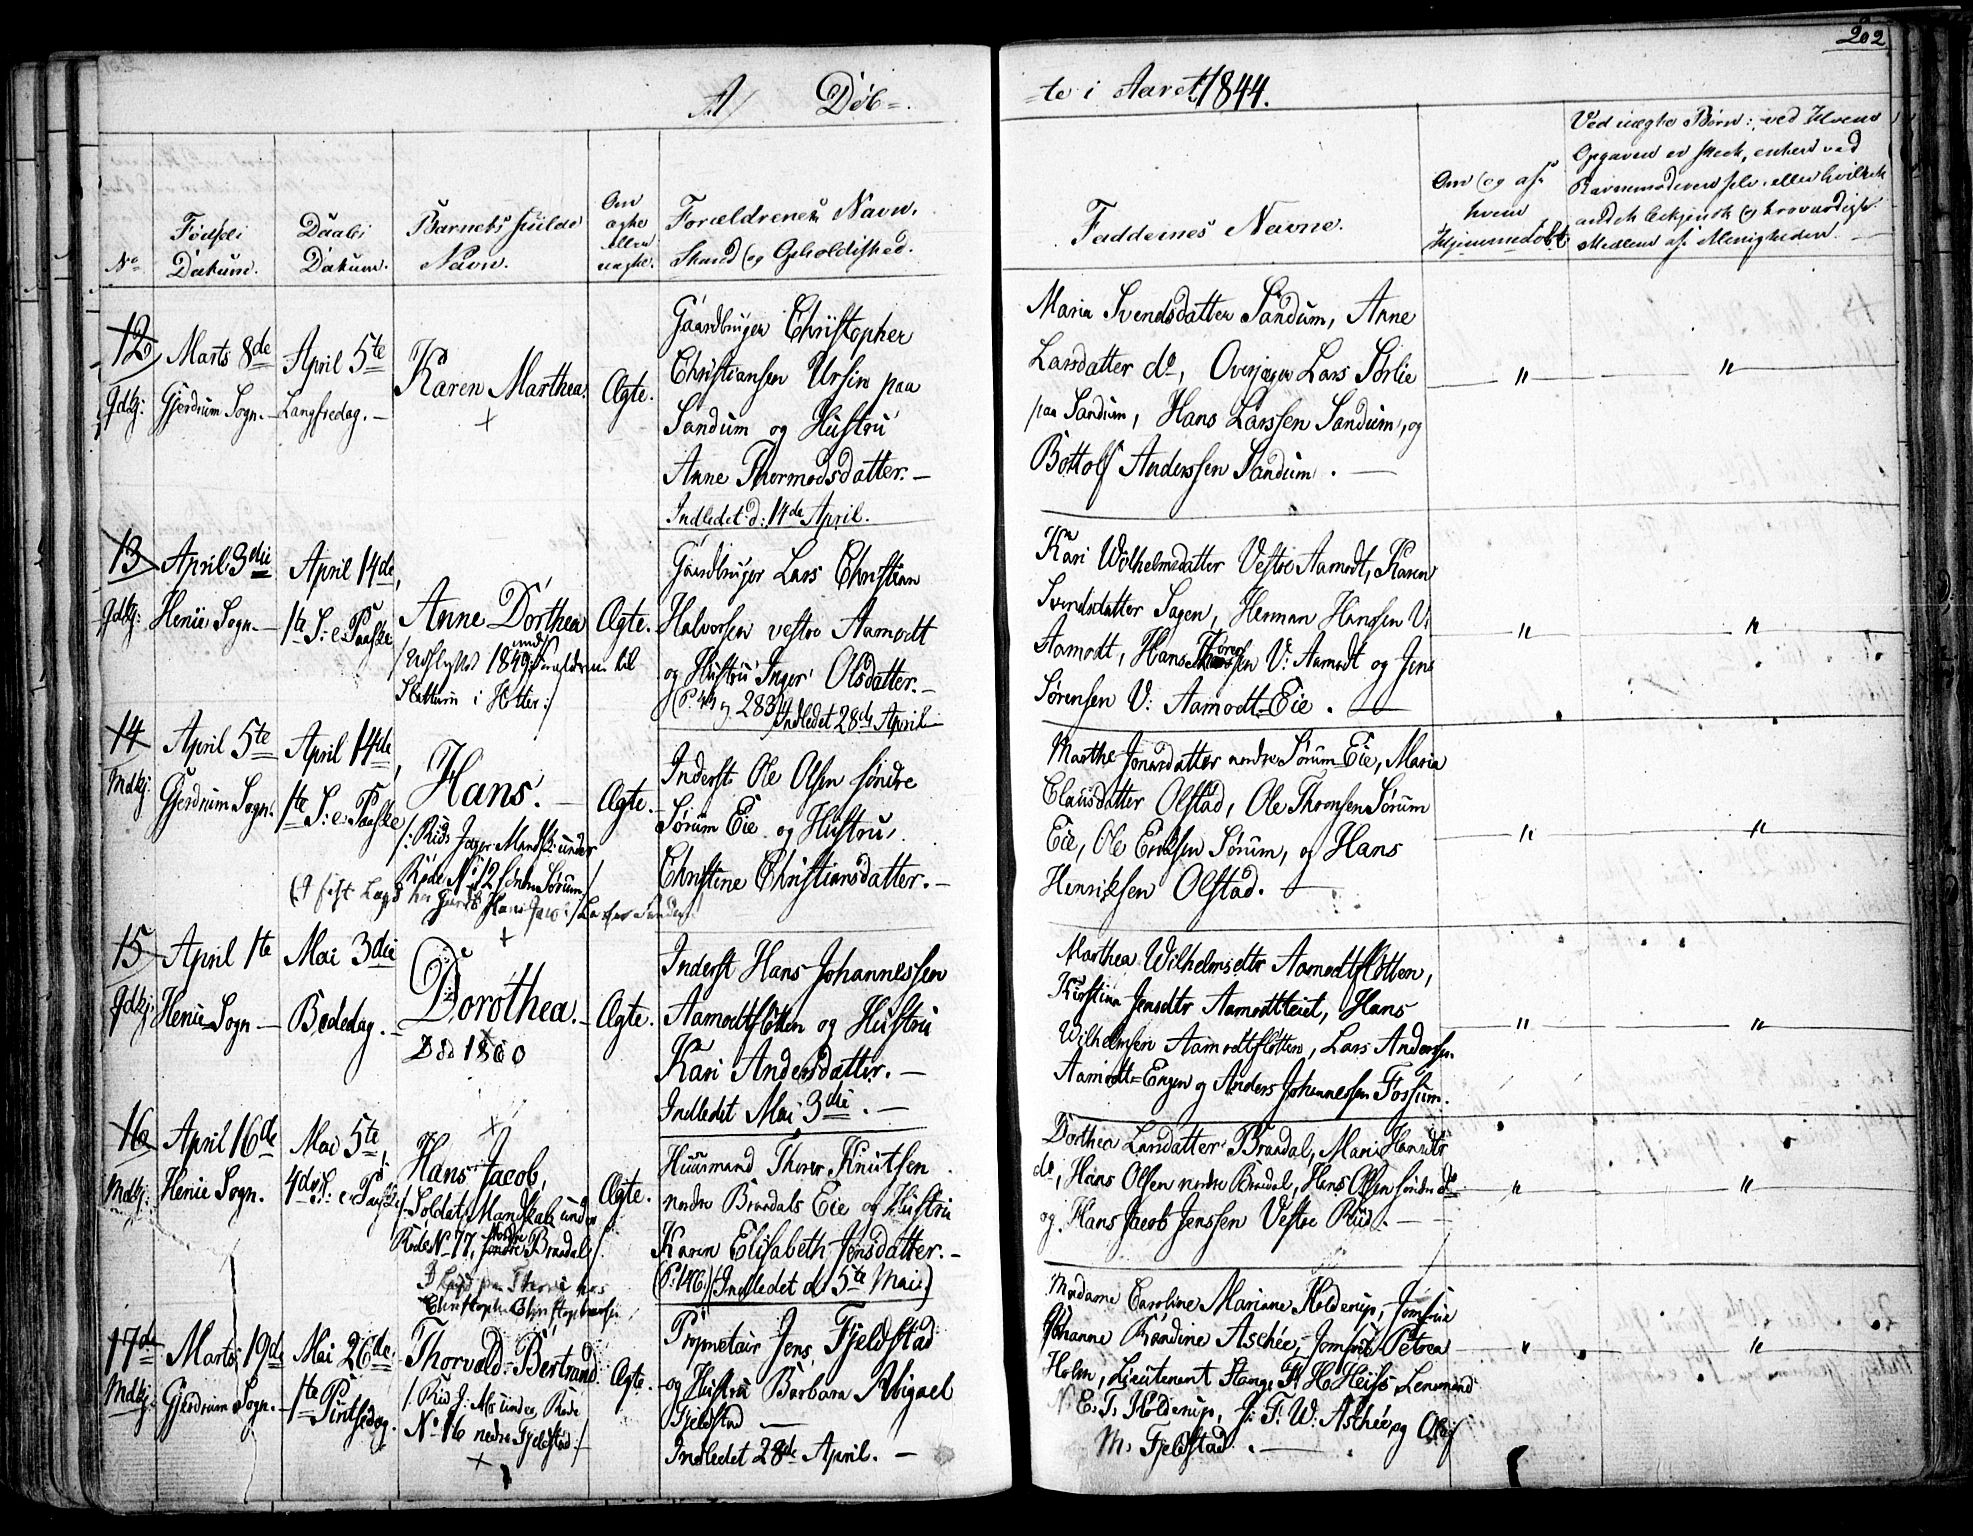 202
A/ Döb=
=te i Aaret 1844.
No
Fødsels Datum.
Daabs Datum.
Barnets fulde Navn.
Om ægte eller uægte.
Forældrenes Navn, Stand og Opholdssted.
Faddernes Navne.
Om og af hvem hjemmedøbt
Ved uægte Børn: ved hvem Opgaven er skeet, enten ved Barnemoderen selv, eller hvilket andet bekjendt og troværdigt Medlem af Menigheden.
12
Gdkj:
Marts 8de
Gjerdrum Sogn.
April 5te
Langfredag.
Karen Marthea.
Ægte.
Gaardbruger Christopher
Christiansen Ursin paa
Sandum og Hustru
Anne Thormodsdatter.
Indledet d: 14de April.
Maria Svendsdatter Sandum, Anne
Larsdatter do, Overjæger Lars Sørlie
paa Sandum, Hans Larssen Sandum, og
Bottolf Anderssen Sandum.
13
Gdkj:
April 3die
Henie Sogn.
April 14de,
1te S: e. Paaske
Anne Dorthea
/Udflyttet 1849 med Forældrene til
Slattum i Hitter:/
Ægte.
Gaardbruger Lars Christian
Halvorsen vestre Aamodt
og Hustru Inger Olsdatter.
Indledet 28de April
Kari Wilhelmsdatter Vestre Aamodt, Karen
Svendsdatter Sagen, Herman Hanssen V:
Aamodt, Hans Thoressen V: Aamodt og Jens
Sørensen V: Aamodt-Eie.
14
Mdkj:
April 5te
Gjerdrum Sogn.
April 14de,
1te S: e. Paaske
Hans.
/: Rids Jæger Mandsk: under
Rode No 12 søndre Sørum/
Ægte.
Inderst Ole Olsen søndre
Sørum Eie og Hustru,
Christine Christiansdatter.
Marthe Jonasdatter nordre Sørum Eie, Maria
Clausdatter Olstad, Ole Thronsen Sørum
Eie, Ole Eriksen Sørum, og Hans
Henriksen Olstad.
15
Gdkj:
April 1te
Henie Sogn
Mai 3die
Bededag.
Dorothea.
Død 1860
Ægte.
Inderst Hans Johannessen
Aamodtfløtten og Hustru
Kari Andersdatter.
Indledet Mai 3die.
Marthea Wilhelmsdtr Aamodtfløtten,
Kirstina Jensdtr Aamodtteiet, Hans
Wilhelmsen Aamodtfløtten, Lars Andersen
Aamodt=Engen og Anders Johannessen Fossum.
16
Mdkj:
April 16de
Henie Sogn.
Mai 5te,
4de S: e. Paaske
Hans Jacob,
/: Soldat Mandskab under
Rode No 77, nordre Braadal/.
Ægte.
Huusmand Thorer Knutsen
nordre Braadals Eie og Hustru
Karen Elisabeth Jensdatter.
(P: 146) (Indledet d: 5te Mai)
Dorthea Larsdatter Braadal, Mari Hansdtr
do, Hans Olsen nordre Braadal, Hans Olsen søndre do
og Hans Jacob Jenssen Vestre Rud.
17de
Mdkj:
Marts 19de
Gjerdrum Sogn.
Mai 26de.
1te Pintsedag.
Thorvald-Bertrand.
/: Rid J: Ms under Rode
No 16 nedre Fjeldstad:/
Ægte.
Proprietair Jens Fjeldstad
og Hustru Barbara Abigael
Fjeldstad
Indledet 28de April.
Madame Caroline Mariane Holderup, Jomfrue
Johanne Bondine Aschée, Jomfrue Petrea
Holm, Lieutenant Stang, H. H. Heiss, Lensmand
N. E. T. Holderup, J. F. W. Aschée og Oluf
M. Fjeldstad.